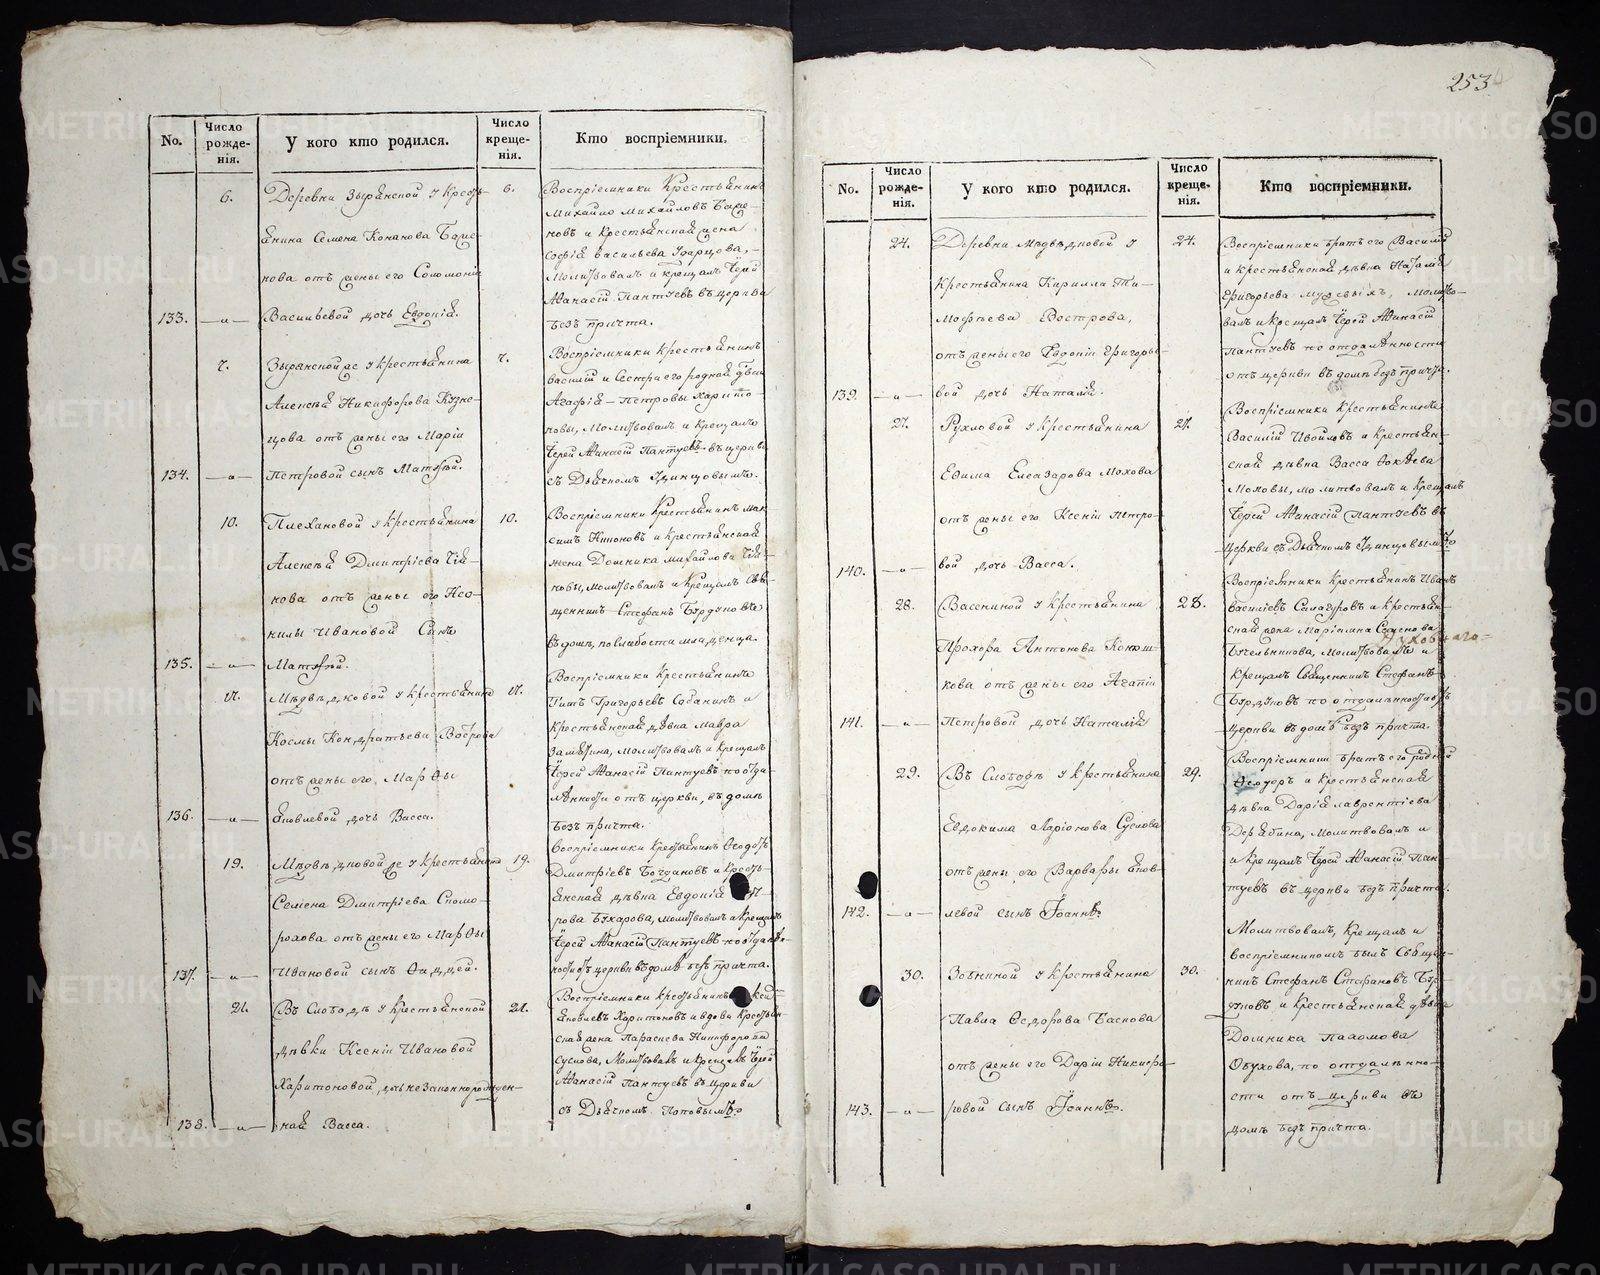 253
No.
Число рожде-нія.
У кого кто родился.
Число креще-нія.
Кто воспріемники.
6.
Деревни Зырянской у кресть-
янина Семена Конанова
нова отъ жены его Соломоніи
133. — и — Васильевой дочь Евдокія.
6.
Воспріемники Крестьянинъ
Михайло Михайловъ
новъ и Крестьянская жена
Софія Васильева
Молитвовалъ и крещалъ Іерей
Афанасій Пантуевъ въ церкви
безъ причта.
7.
Зырянской же у крестьянина
Алексѣя Никифорова Кузне-
цова отъ жены его Маріи
134. — и — Петровой сынъ Матѳей.
7.
Воспріемники Крестьянинъ
Василій и Сестра его родная дѣвка
Агафія — Петровы Харито-
новы, Молитвовалъ и Крещалъ
Іерей Афанасій Пантуевъ въ церкви
съ Дьячкомъ Удинцовымъ.
10.
Плехановой у крестьянина
Алексѣя Дмитріева
нова отъ жены его Нео-
нилы Ивановой Сынъ
135. — и — Матѳей.
10.
Воспріемники Крестьянинъ Мак-
симъ и Крестьянская
жена Домника Михайлова
новы, молитвовалъ и Крещалъ Свя-
щенникъ Стефанъ Бурдуковъ
въ дому, по слабости младенца.
17.
Мѣдвѣдковой у крестьянина
Космы Кондратьева Вострова
отъ жены его, Марѳы
136. — и — Яковлевой дочь Васса.
17.
Воспріемники Крестьянинъ
Титъ Григорьевъ и
Крестьянская дѣвка Мавра
Замятина, Молитвовалъ и Крещалъ
Іерей Афанасій Пантуевъ по отда-
лѣнности отъ церкви, въ домѣ
безъ причта.
19.
Мѣдвѣдковой же у крестьянина
Семена Дмитріева Скомо-
рохова отъ жены его Марѳы
137. — и — Ивановой сынъ Ѳаддей.
19.
Воспріемники Крестьянинъ Ѳедотъ
Дмитріевъ Богдановъ и Кресть-
янская дѣвка Евдокія
рова Бухарова, Молитвовалъ и Крещалъ
Іерей Афанасій Пантуевъ по отдалѣн-
ности отъ церкви въ домѣ безъ причта.
21.
Въ Слободѣ у Крестьянской
дѣвки Ксеніи Ивановой
Харитоновой, дочь незаконнорожден-
138. — и — ная Васса.
21.
Воспріемники Крестьянинъ
Яковлевъ Харитоновъ и вдова Крестьян-
ская жена Параскева Никифорова
Суслова, Молитвовалъ и Крещалъ Іерей
Афанасій Пантуевъ въ Церкви
съ Дьячкомъ Поповымъ.
No.
Число рожде-нія.
У кого кто родился.
Число креще-нія.
Кто воспріемники.
24.
Деревни Мѣдвѣдковой у
Крестьянина Кирилла Ти-
мофѣева Вострова,
отъ жены его Евдокіи Григорье-
139. — и — вой дочь Наталія.
24.
Воспріемники братъ его Василій
и крестьянская дѣвка Наталія
Григорьева Молитво-
валъ и Крещалъ Іерей Афанасій
Пантуевъ по отдалѣнности
отъ церкви въ домѣ безъ причта.
27.
Рухловой у крестьянина
Ефима Елеазарова Мохова
отъ жены его Ксеніи Петро-
140. — и — вой дочь Васса.
27.
Воспріемники Крестьянинъ
Василій и Крестьян-
ская дѣвка Васса
Моховы, молитвовалъ и Крещалъ
Іерей Афанасій Пантуевъ въ
церкви съ Дьячкомъ Удинцовымъ
28.
у крестьянина
Прохора Антонова
кова отъ жены его Агапіи
141. — и — Петровой дочь Наталія
28.
Воспріемники Крестьянинъ Иванъ
Василіевъ и крестьян-
ская жена Маріамна
Молитвовалъ и
Крещалъ Священникъ Стефанъ
Бурдуковъ по отдалѣнности отъ
церкви въ домѣ безъ причта.
29.
Въ Слободѣ у Крестьянина
Евдокима Ларіонова Суслова
отъ жены его Варвары Яков-
142. — и — левой сынъ Іоаннъ.
29.
Воспріемники братъ его родной
Ѳедоръ и Крестьянская
дѣвка Дарія Лаврентіева
Дерябина, Молитвовалъ и
и Крещалъ Іерей Афанасій Пан-
туевъ въ церкви безъ причта.
30.
у крестьянина
Павла Ѳедорова Баскова
отъ жены его Даріи Никифо-
143. — и — ровой сынъ Іоаннъ.
30.
Молитвовалъ, Крещалъ и
воспріемникомъ былъ Священ-
никъ Стефанъ Стефановъ Бур-
дуковъ и Крестьянская дѣвка
Домника Пахомова
Обухова, по отдалѣнно-
сти отъ церкви въ
домѣ безъ причта.
METRIKI.GASO-URAL.RU